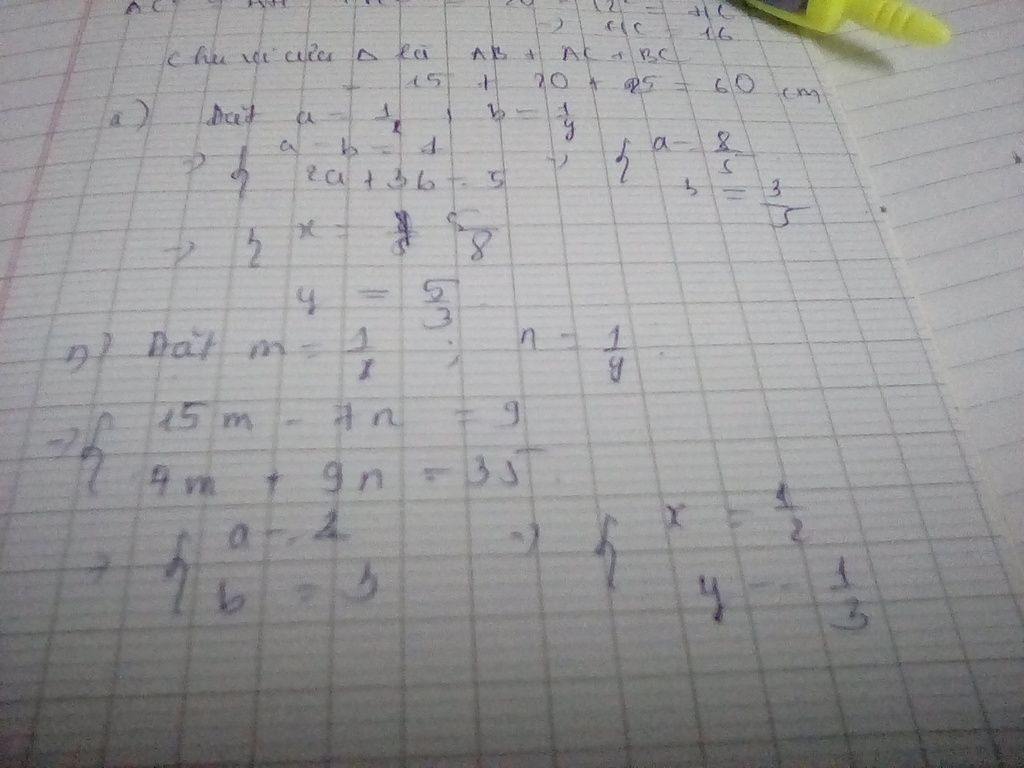 Chu vi của Δ là AB + AC + BC
= 15 + 20 + 25 = 60 cm
a) Đặt a = 1/x , b = 1/y
=> { a - b = 1 => { a = 8/5
2a + 3b = 5 b = 3/5
=> { x = 5/8
y = 5/3
b) Đặt m = 1/x ; n = 1/y
=> { 15m - 7n = 9
4m + 9n = 35
=> { a = 2 => { x = 1/2
b = 3 y = 1/3